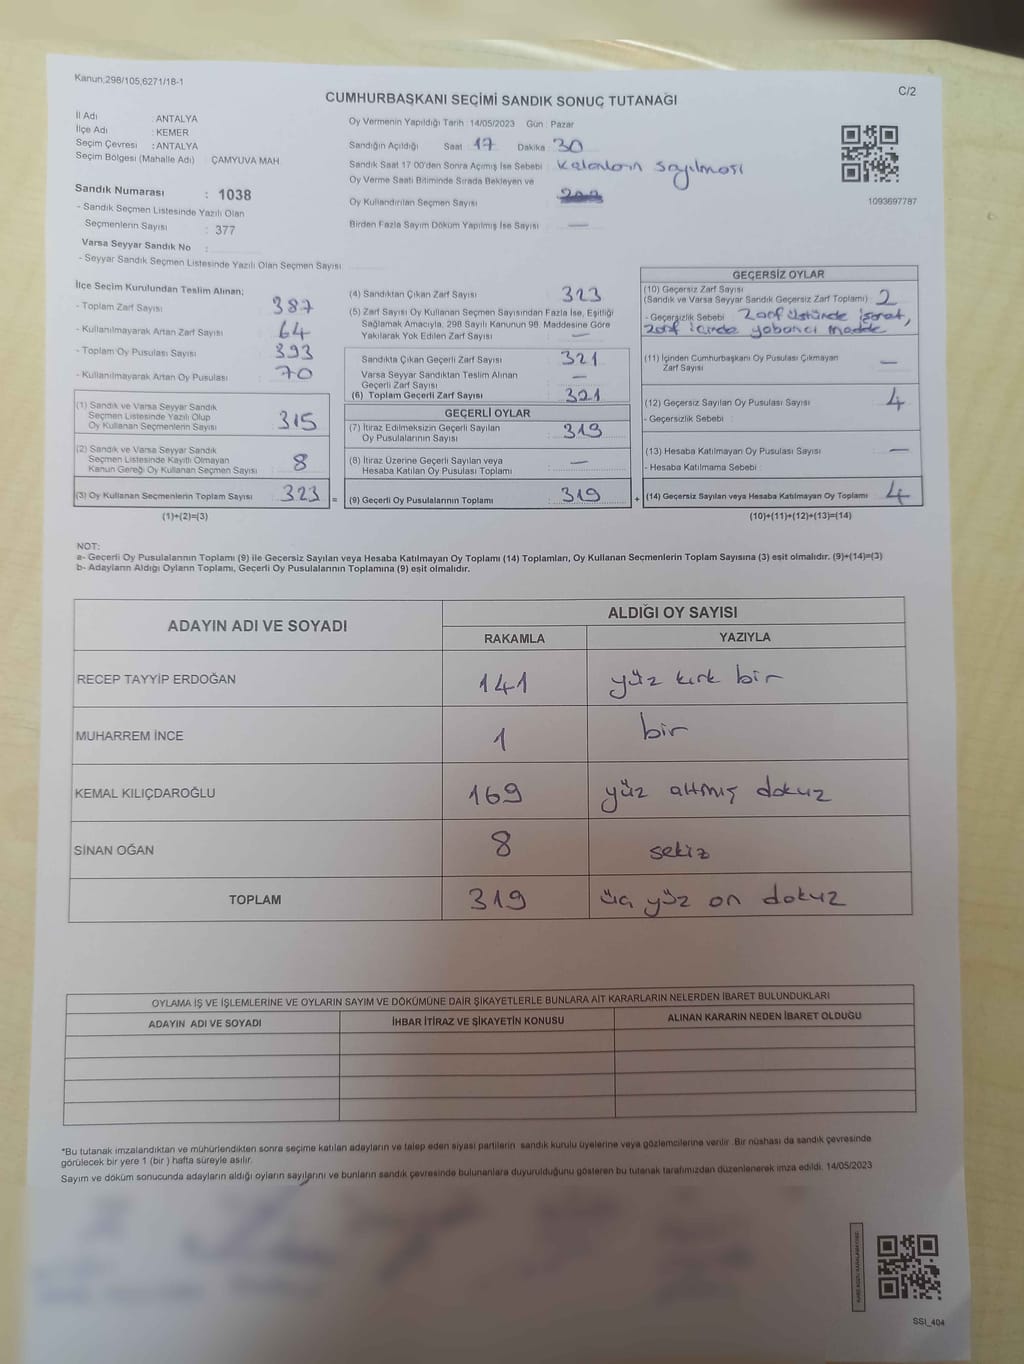 Kanun,298/105,6271/18-1
C/2
CUMHURBAŞKANI SEÇİMİ SANDIK SONUÇ TUTANAĞI
İl Adı : ANTALYA
İlçe Adı : KEMER
Seçim Çevresi : ANTALYA
Seçim Bölgesi (Mahalle Adı) : ÇAMYUVA MAH.
Sandık Numarası : 1038
- Sandık Seçmen Listesinde Yazılı Olan
Seçmenlerin Sayısı : 377
Varsa Seyyar Sandık No :
- Seyyar Sandık Seçmen Listesinde Yazılı Olan Seçmen Sayısı
Oy Vermenin Yapıldığı Tarih :14/05/2023 Gün : Pazar
Sandığın Açıldığı Saat 17 Dakika 30
Sandık Saat 17:00'den Sonra Açımış İse Sebebi : kalanların sayılması
Oy Verme Saati Bitiminde Sırada Bekleyen ve
Oy Kullandırılan Seçmen Sayısı
Birden Fazla Sayım Döküm Yapılmış İse Sayısı : —
1093697787
İlçe Seçim Kurulundan Teslim Alınan;
- Toplam Zarf Sayısı : 387
- Kullanılmayarak Artan Zarf Sayısı : 64
- Toplam Oy Pusulası Sayısı : 393
- Kullanılmayarak Artan Oy Pusulası : 70
(1) Sandık ve Varsa Seyyar Sandık
Seçmen Listesinde Yazılı Olup
Oy Kullanan Seçmenlerin Sayısı : 315
(2) Sandık ve Varsa Seyyar Sandık
Seçmen Listesinde Kayıtlı Olmayan
Kanun Gereği Oy Kullanan Seçmen Sayısı : 8
(3) Oy Kullanan Seçmenlerin Toplam Sayısı : 323 =
(1)+(2)=(3)
(4) Sandıktan Çıkan Zarf Sayısı : 323
(5) Zarf Sayısı Oy Kullanan Seçmen Sayısından Fazla İse, Eşitliği
Sağlamak Amacıyla, 298 Sayılı Kanunun 98. Maddesine Göre
Yakılarak Yok Edilen Zarf Sayısı : —
Sandıkta Çıkan Geçerli Zarf Sayısı : 321
Varsa Seyyar Sandıktan Teslim Alınan
Geçerli Zarf Sayısı : —
(6) Toplam Geçerli Zarf Sayısı : 321
GEÇERLİ OYLAR
(7) İtiraz Edilmeksizin Geçerli Sayılan
Oy Pusulalarının Sayısı : 319
(8) İtiraz Üzerine Geçerli Sayılan veya
Hesaba Katılan Oy Pusulası Toplamı : —
(9) Geçerli Oy Pusulalarının Toplamı : 319 +
GEÇERSİZ OYLAR
(10) Geçersiz Zarf Sayısı
(Sandık ve Varsa Seyyar Sandık Geçersiz Zarf Toplamı) : 2
- Geçersizlik Sebebi : Zarf üstünde işaret,
zarf içinde yabancı madde
(11) İçinden Cumhurbaşkanı Oy Pusulası Çıkmayan
Zarf Sayısı : —
(12) Geçersiz Sayılan Oy Pusulası Sayısı : 4
- Geçersizlik Sebebi :
(13) Hesaba Katılmayan Oy Pusulası Sayısı : —
- Hesaba Katılmama Sebebi :
(14) Geçersiz Sayılan veya Hesaba Katılmayan Oy Toplamı : 4
(10)+(11)+(12)+(13)=(14)
NOT:
a- Geçerli Oy Pusulalarının Toplamı (9) ile Geçersiz Sayılan veya Hesaba Katılmayan Oy Toplamı (14) Toplamları, Oy Kullanan Seçmenlerin Toplam Sayısına (3) eşit olmalıdır. (9)+(14)=(3)
b- Adayların Aldığı Oyların Toplamı, Geçerli Oy Pusulalarının Toplamına (9) eşit olmalıdır.
ADAYIN ADI VE SOYADI
ALDIĞI OY SAYISI
RAKAMLA YAZIYLA
RECEP TAYYİP ERDOĞAN 141 yüz kırk bir
MUHARREM İNCE 1 bir
KEMAL KILIÇDAROĞLU 169 yüz altmış dokuz
SİNAN OĞAN 8 sekiz
TOPLAM 319 üç yüz on dokuz
OYLAMA İŞ VE İŞLEMLERİNE VE OYLARIN SAYIM VE DÖKÜMÜNE DAİR ŞİKAYETLERLE BUNLARA AİT KARARLARIN NELERDEN İBARET BULUNDUKLARI
ADAYIN ADI VE SOYADI İHBAR İTİRAZ VE ŞİKAYETİN KONUSU ALINAN KARARIN NEDEN İBARET OLDUĞU
*Bu tutanak imzalandıktan ve mühürlendikten sonra seçime katılan adayların ve talep eden siyasi partilerin sandık kurulu üyelerine veya gözlemcilerine verilir .Bir nüshası da sandık çevresinde
görülecek bir yere 1 (bir ) hafta süreyle asılır.
Sayım ve döküm sonucunda adayların aldığı oyların sayılarını ve bunların sandık çevresinde bulunanlara duyurulduğunu gösteren bu tutanak tarafımızdan düzenlenerek imza edildi. 14/05/2023
SSI_404